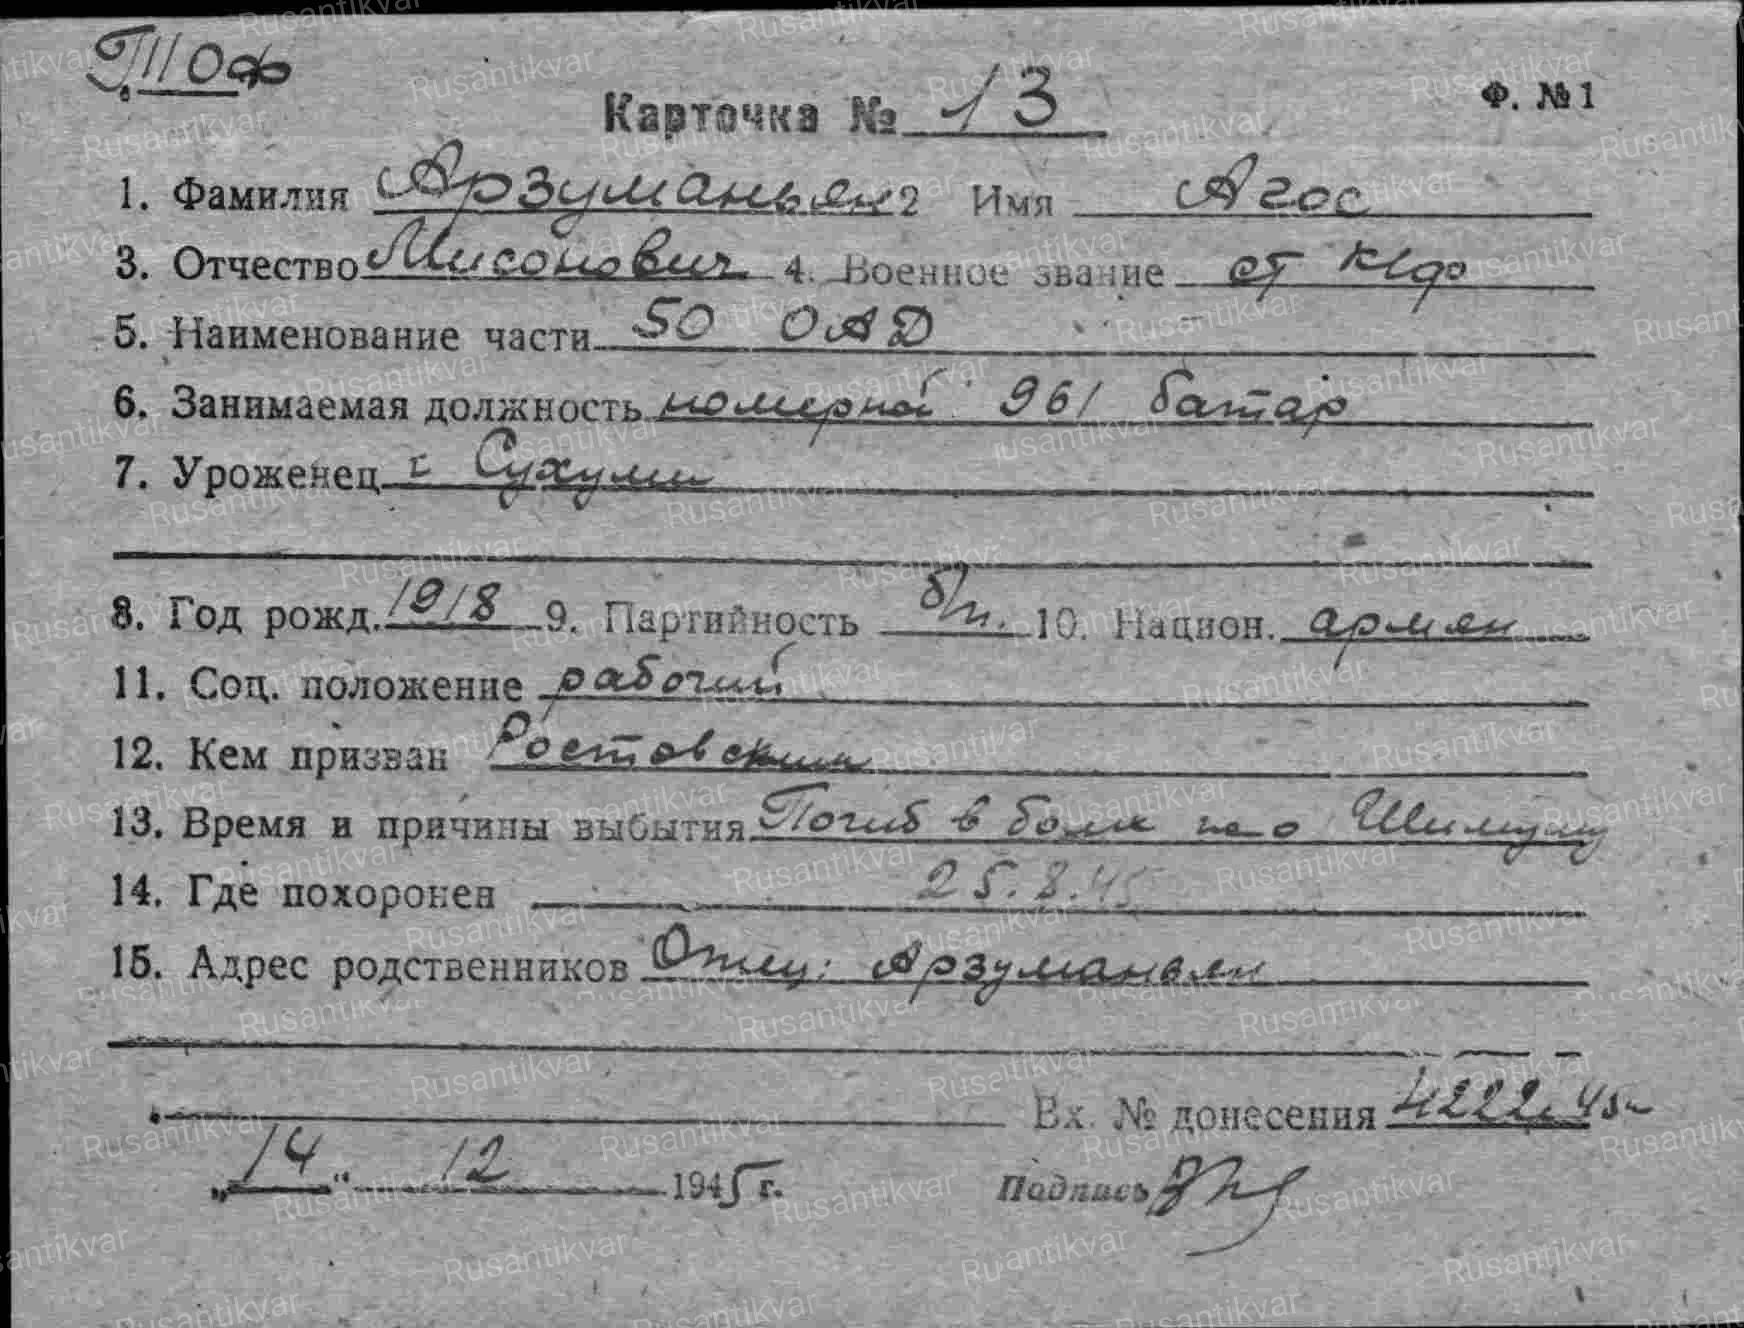 ТОФ
Карточка № 13 Ф. № 1
1. Фамилия Арзуманьян 2 Имя Агос
3. Отчество Мисонович 4. Военное звание ст кф
5. Наименование части 50 ОАД
6. Занимаемая должность номерной 961 батар
7. Уроженец г Сухуми
8. Год рожд. 1918 9. Партийность б/п. 10. Национ. армян
11. Соц. положение рабочий
12. Кем призван Ростовским
13. Время и причины выбытия Погиб в боях на о Шимушу
14. Где похоронен 25.8.45
15. Адрес родственников Отец: Арзуманьян
Вх. № донесения 4222. 45г
„14“ 12 1945 г. Подпись